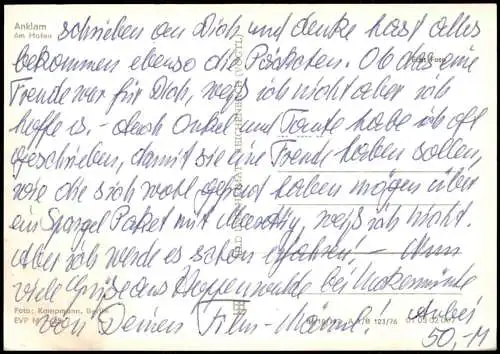 Anklam
Am Hafen
schrieben an Dich und denke hast alles
bekommen ebenso die Päckchen. Ob das eine
Freude war für Dich, weiß ich nicht aber ich
hoffe es. – auch Onkel und Tante habe ich oft
geschrieben, damit sie eine Freude haben sollen,
wie die sich wohl gefreut haben mögen über
ein Spargel Paket mit weiß ich nicht.
Aber ich werde es schon erfahren! – Nun
viele Grüße aus Hoppenwalde bei Ueckermünde
Foto: Kampmann, Berlin
von Deinem Film-
EVP M
123/76 01 05 02 061
50,-M